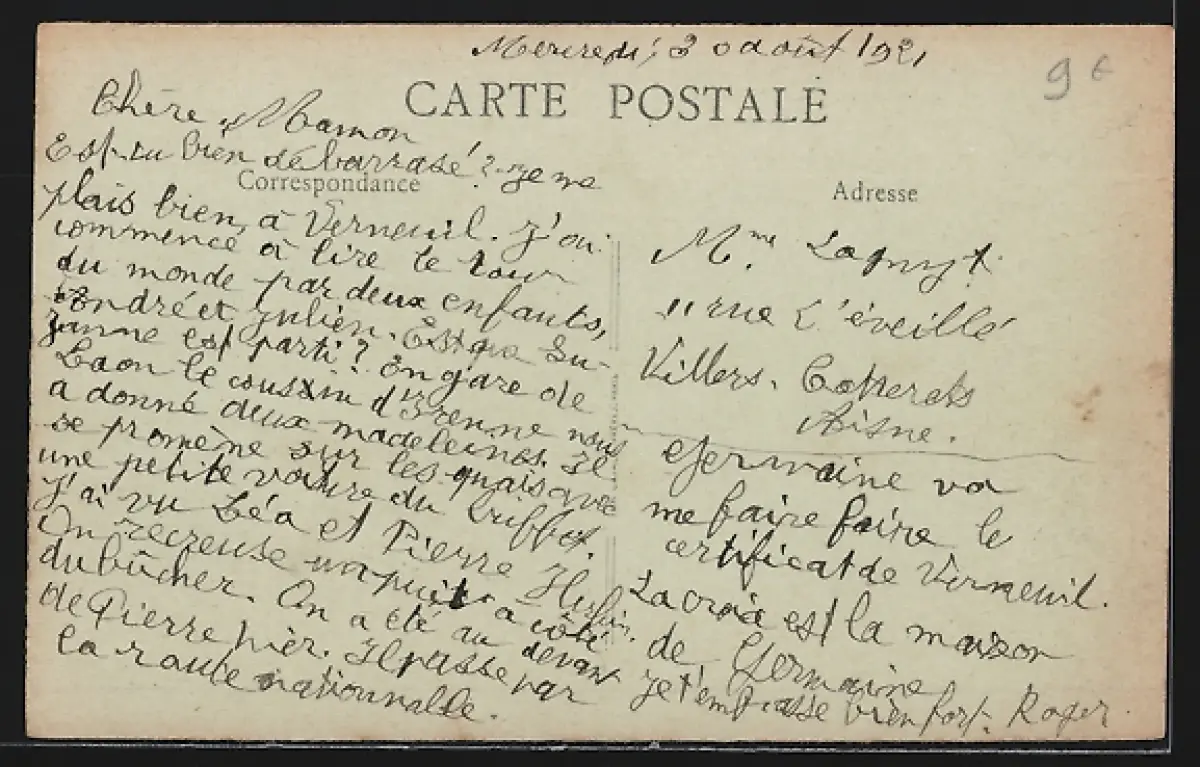 Mercredi, 3 0 août 1921
9 €
CARTE POSTALE
Chère Maman
Es-tu bien débarrasé? Je me
Correspondance
plais bien à Verneuil. J'ai
commencé à lire le tour
du monde par deux enfants,
André et Julien. Est que Su-
zanne est parti? En gare de
Laon le coussin d'Irenne nous
a donné deux madeleines. Il
se promène sur les quais avec
une petite voiture du buffet.
J'ai vu Léa et Pierre
On recreuse un puit à côté
du bûcher. On a été au devant
de Pierre hier. Il passe par
la route nationnalle.
Adresse
Mme
11 rue L'éveillé
Villers. Cotterets
Aisne.
Germaine va
me faire faire le
certificat de Verneuil.
La croix est la maison
de Germaine
Je t'embrasse bien fort. Roger.